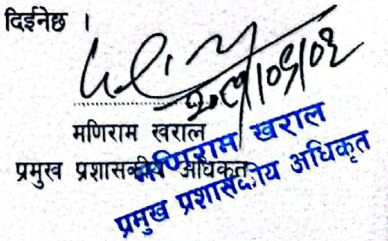 दिईनेछ ।
मणिराम खराल
प्रमुख प्रशासकीय अधिकृत
मणिराम खराल
प्रमुख प्रशासकीय अधिकृत